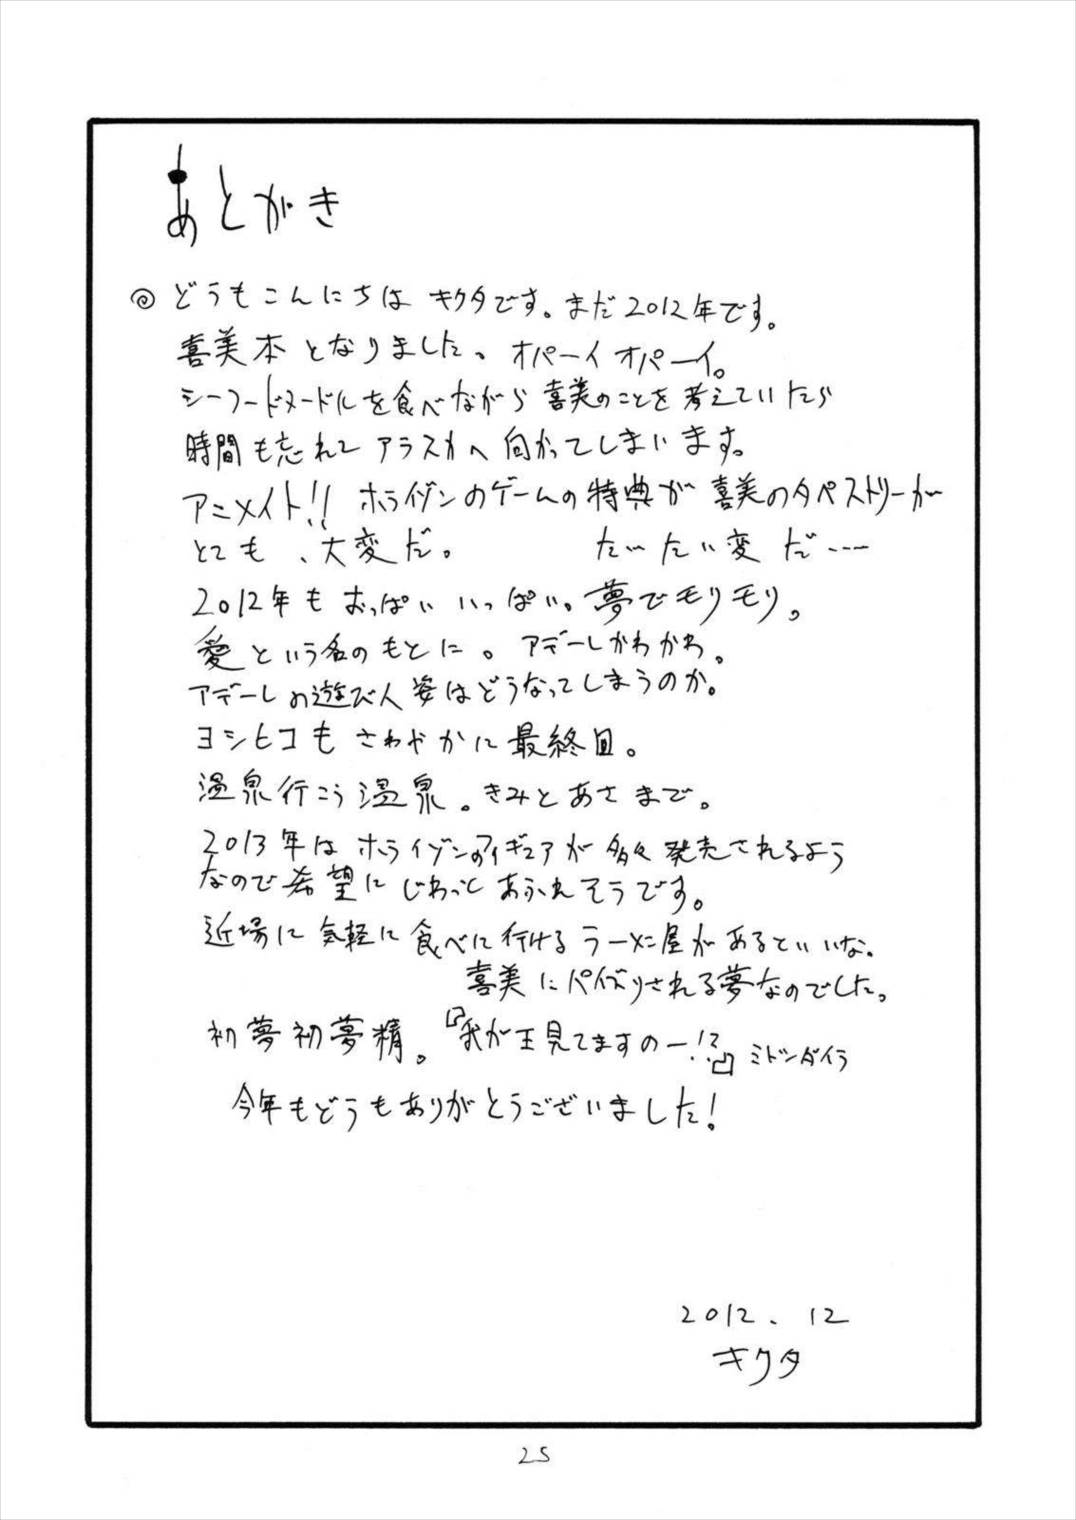 あとがき
◎ どうもこんにちは キクタです。まだ2012年です。
喜美本となりました。オパーイオパーイ。
シーフードヌードルを食べながら喜美のことを考えていたら
時間も忘れてアラスカへ向かってしまいます。
アニメイト!! ホライゾンのゲームの特典が喜美のタペストリーが
とても、大変だ。 たいたい変だ---
2012年もおっぱいいっぱい。夢でモリモリ。
愛という名のもとに。アデーレかわかわ。
アデーレの遊び人姿はどうなってしまうのか。
ヨシヒコもさわやかに最終回。
温泉行こう温泉。きみとあさまで。
2013年はホライゾンのフィギュアが多々発売されるよう
なので希望にじわっとあふれそうです。
近場に気軽に食べに行けるラーメン屋があるといいな。
喜美にパイズリされる夢なのでした。
初夢初夢精。『我が王見てますのー!?』ミドンダイラ
今年もどうもありがとうございました!
2012.12
キクタ
25